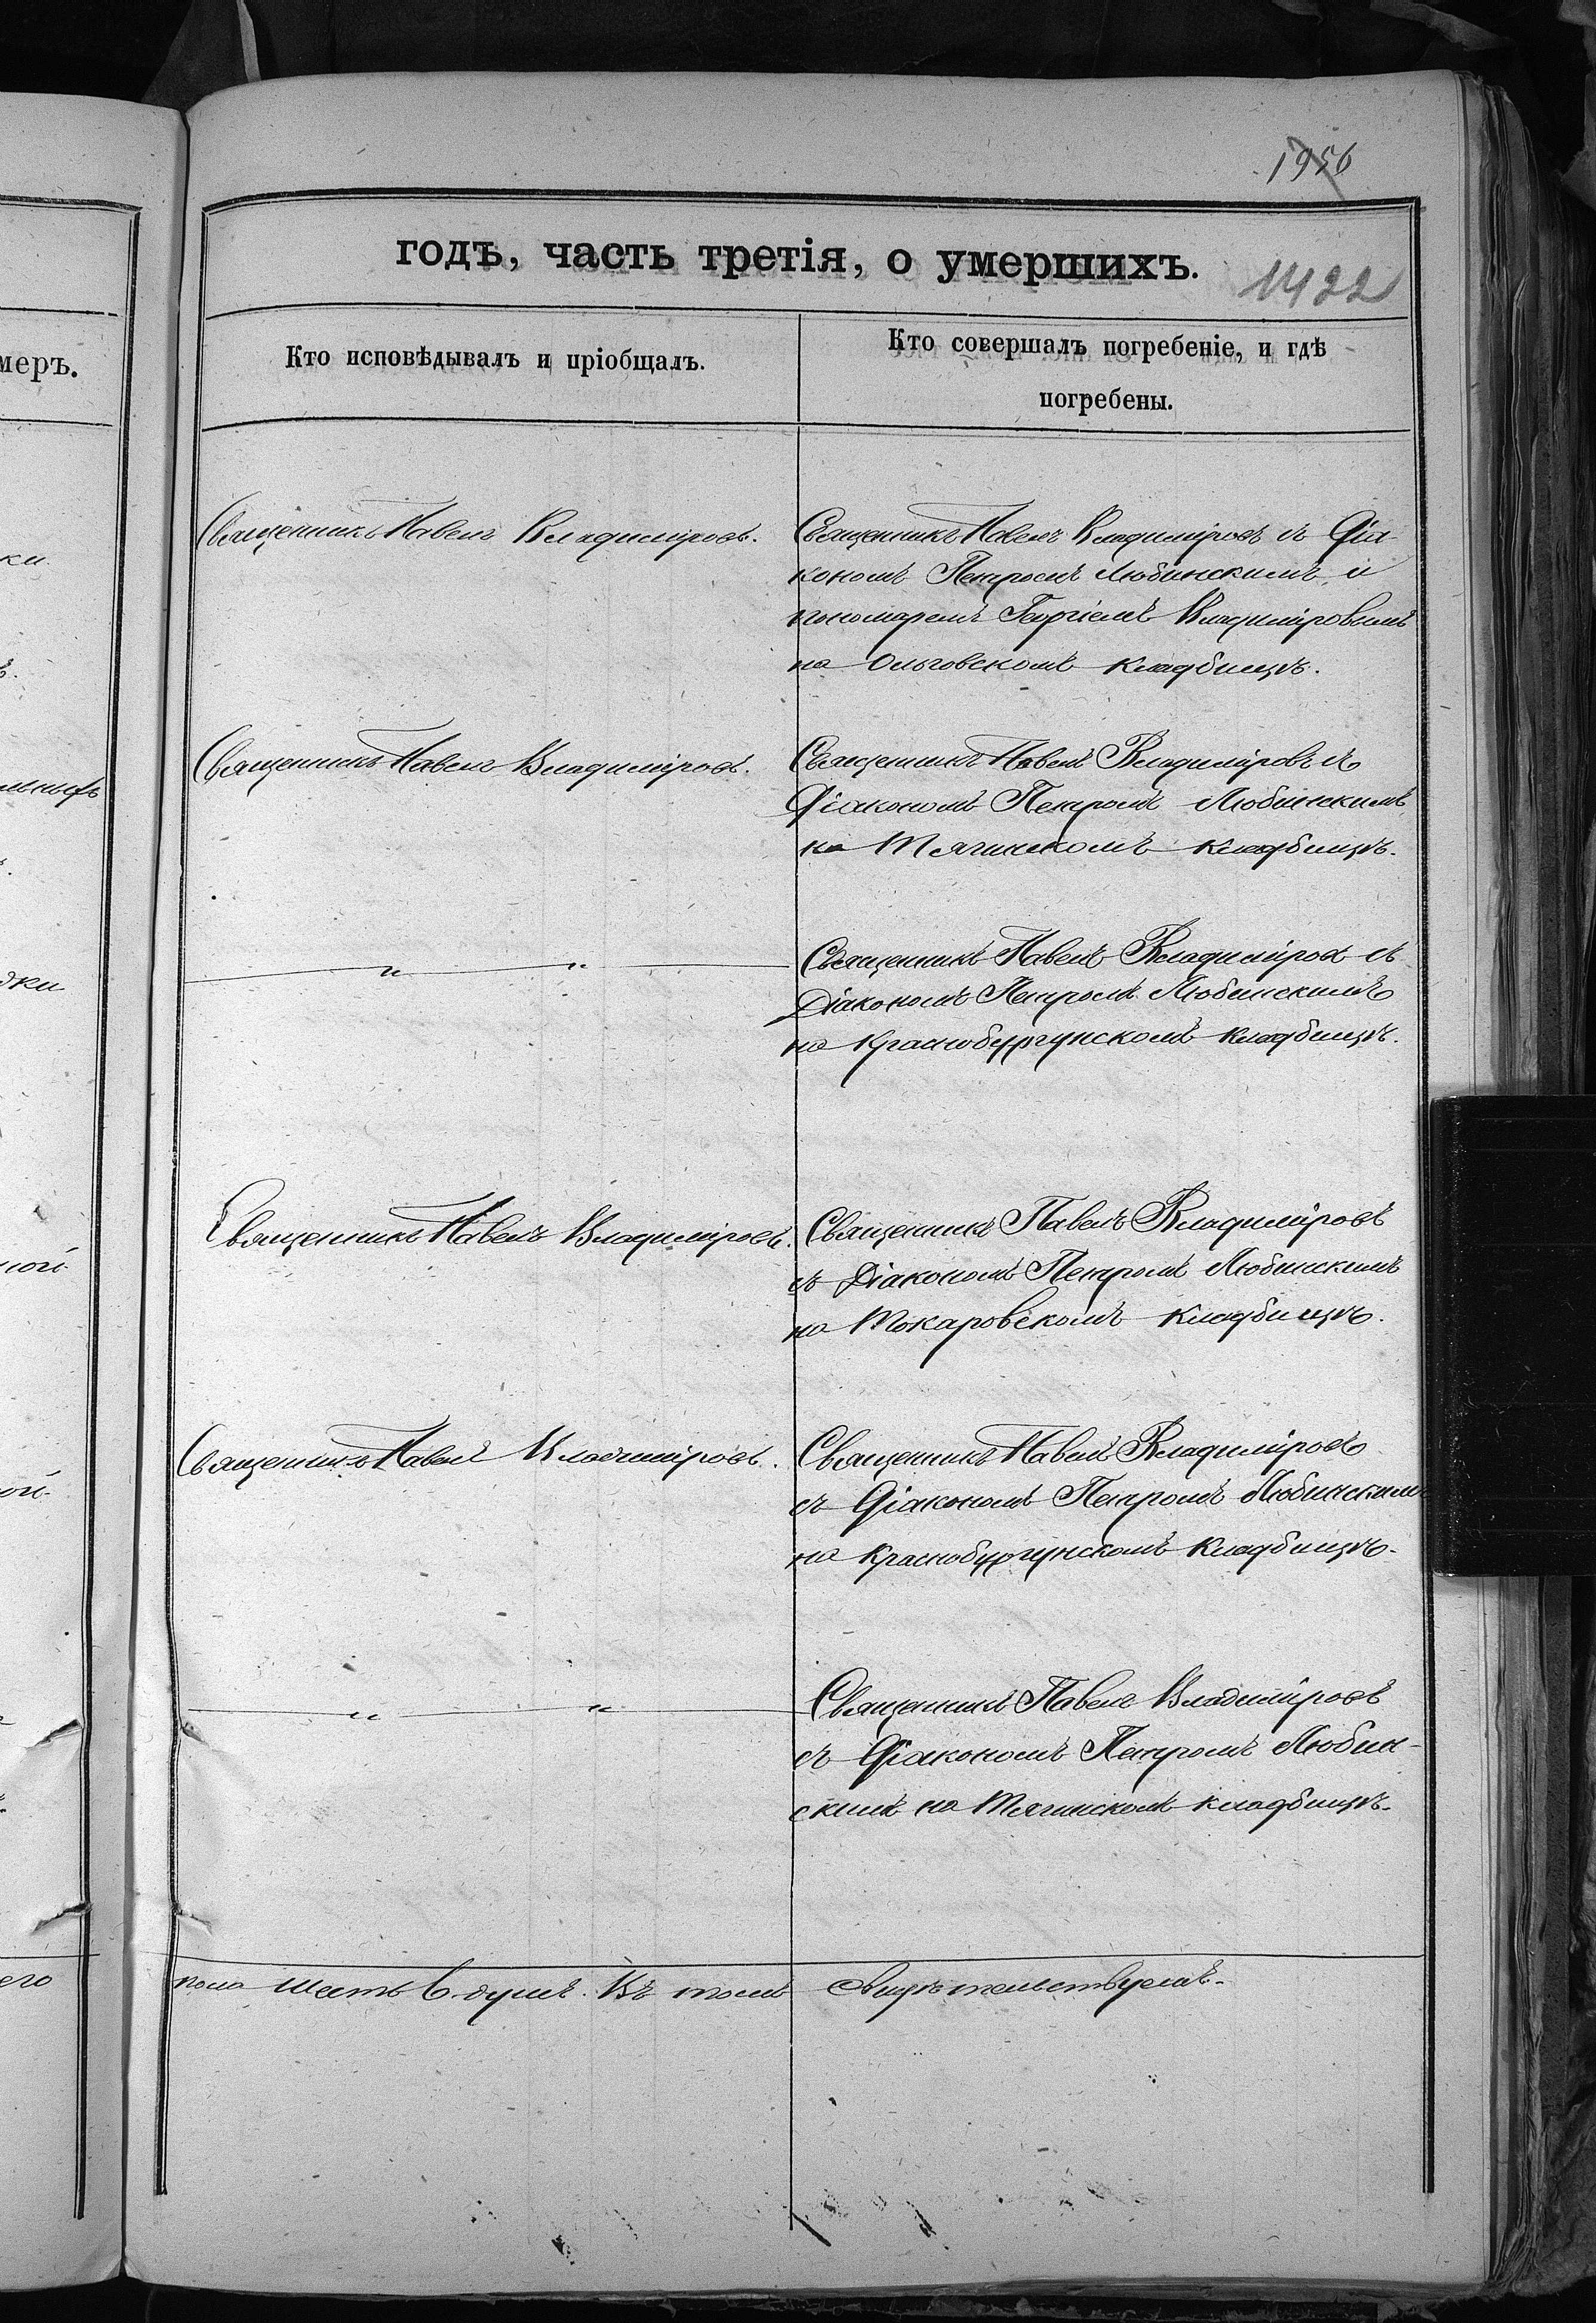 1956
годъ, часть третія, о умершихъ.
1422
меръ.
Кто исповѣдывалъ и пріобщалъ.
Кто совершалъ погребеніе, и гдѣ
погребены.
Священникъ Павелъ Владиміровъ.
Священникъ Павелъ Владиміровъ съ Діа-
кономъ Петромъ Любинскимъ и
пономаремъ Георгіемъ Владиміровымъ
на Ольговскомъ кладбищѣ.
Священникъ Павелъ Владиміровъ.
Священникъ Павелъ Владиміровъ съ
Діакономъ Петромъ Любинскимъ
на Тягинскомъ кладбищѣ.
— „ — „ —
Священникъ Павелъ Владиміровъ съ
Діакономъ Петромъ Любинскимъ
на Краснобургунскомъ кладбищѣ.
Священникъ Павелъ Владиміровъ.
Священникъ Павелъ Владиміровъ
съ Діакономъ Петромъ Любинскимъ
на Токаровскомъ кладбищѣ.
Священникъ Павелъ Владиміровъ.
Священникъ Павелъ Владиміровъ
съ Діакономъ Петромъ Любинскимъ
на Краснобургунскомъ кладбищѣ.
— „ — „ —
Священникъ Павелъ Владиміровъ
съ Діакономъ Петромъ Любин-
скимъ на Тягинскомъ кладбищѣ.
его
пола шесть 6. душъ. Въ томъ
свидѣтельствуемъ.